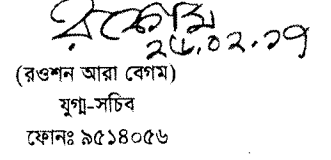 ২৬.০২.১৭
(রওশন আরা বেগম)
যুগ্ম-সচিব
ফোনঃ ৯৫১৪০৫৬